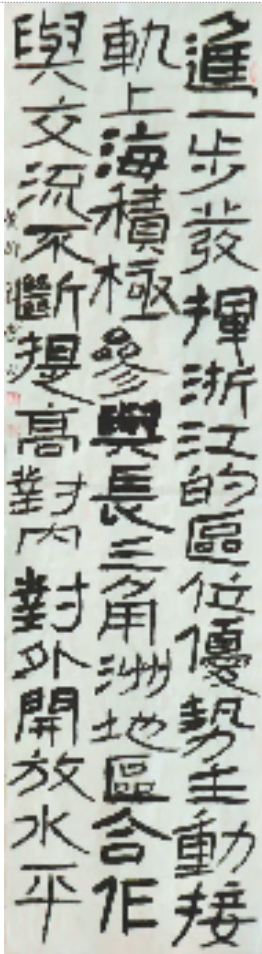 進一步發揮浙江的區位優勢主動接
軌上海積極參與長三角洲地區合作
與交流不斷提高對內對外開放水平